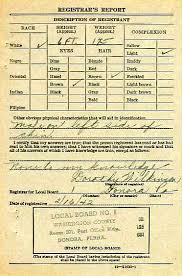 REGISTRAR'S REPORT
DESCRIPTION OF REGISTRANT
RACE HEIGHT (Approx.) WEIGHT (Approx.) COMPLEXION
White ✓ 6 FT. Sallow
EYES HAIR Light ✓
Negro Blue Blonde Ruddy
Gray Red Dark
Oriental Hazel Brown ✓ Freckled
Brown ✓ Black Light brown
Indian Black Gray Dark brown
Filipino Bald Black
Other obvious physical characteristics that will aid in identification
Mole on left side of
chin
I certify that my answers are true; that the person registered has read or has had
read to him his own answers; that I have witnessed his signature or mark and that
all of his answers of which I have knowledge are true, except as follows:
None to my knowledge
Registrar for Local Board 1 Donora Pa
LOCAL BOARD NO. 1
WASHINGTON COUNTY
DONORA, PENNA.
STAMP OF LOCAL BOARD
(The stamp of the Local Board having jurisdiction of the registrant
shall be placed in the above space.)